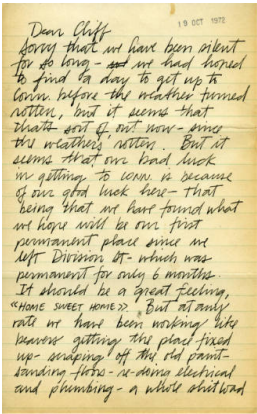 19 OCT 1972
Dear Cliff
Sorry that we have been silent
for so long - we had hoped
to find a day to get up to
Conn. before the weather turned
rotten, but it seems that
thats sort of out now - since
the weathers rotten. But it
seems that our bad luck
in getting to conn. is because
of our good luck here - that
being that we have found what
we hope will be our first
permanent place since we
left Division st - which was
permanent for only 6 months.
It should be a great feeling,
"HOME SWEET HOME". But at any
rate we have been working like
beavers getting the place fixed
up - scraping off the old paint -
sanding floors - re-doing electrical
and plumbing - a whole shitload